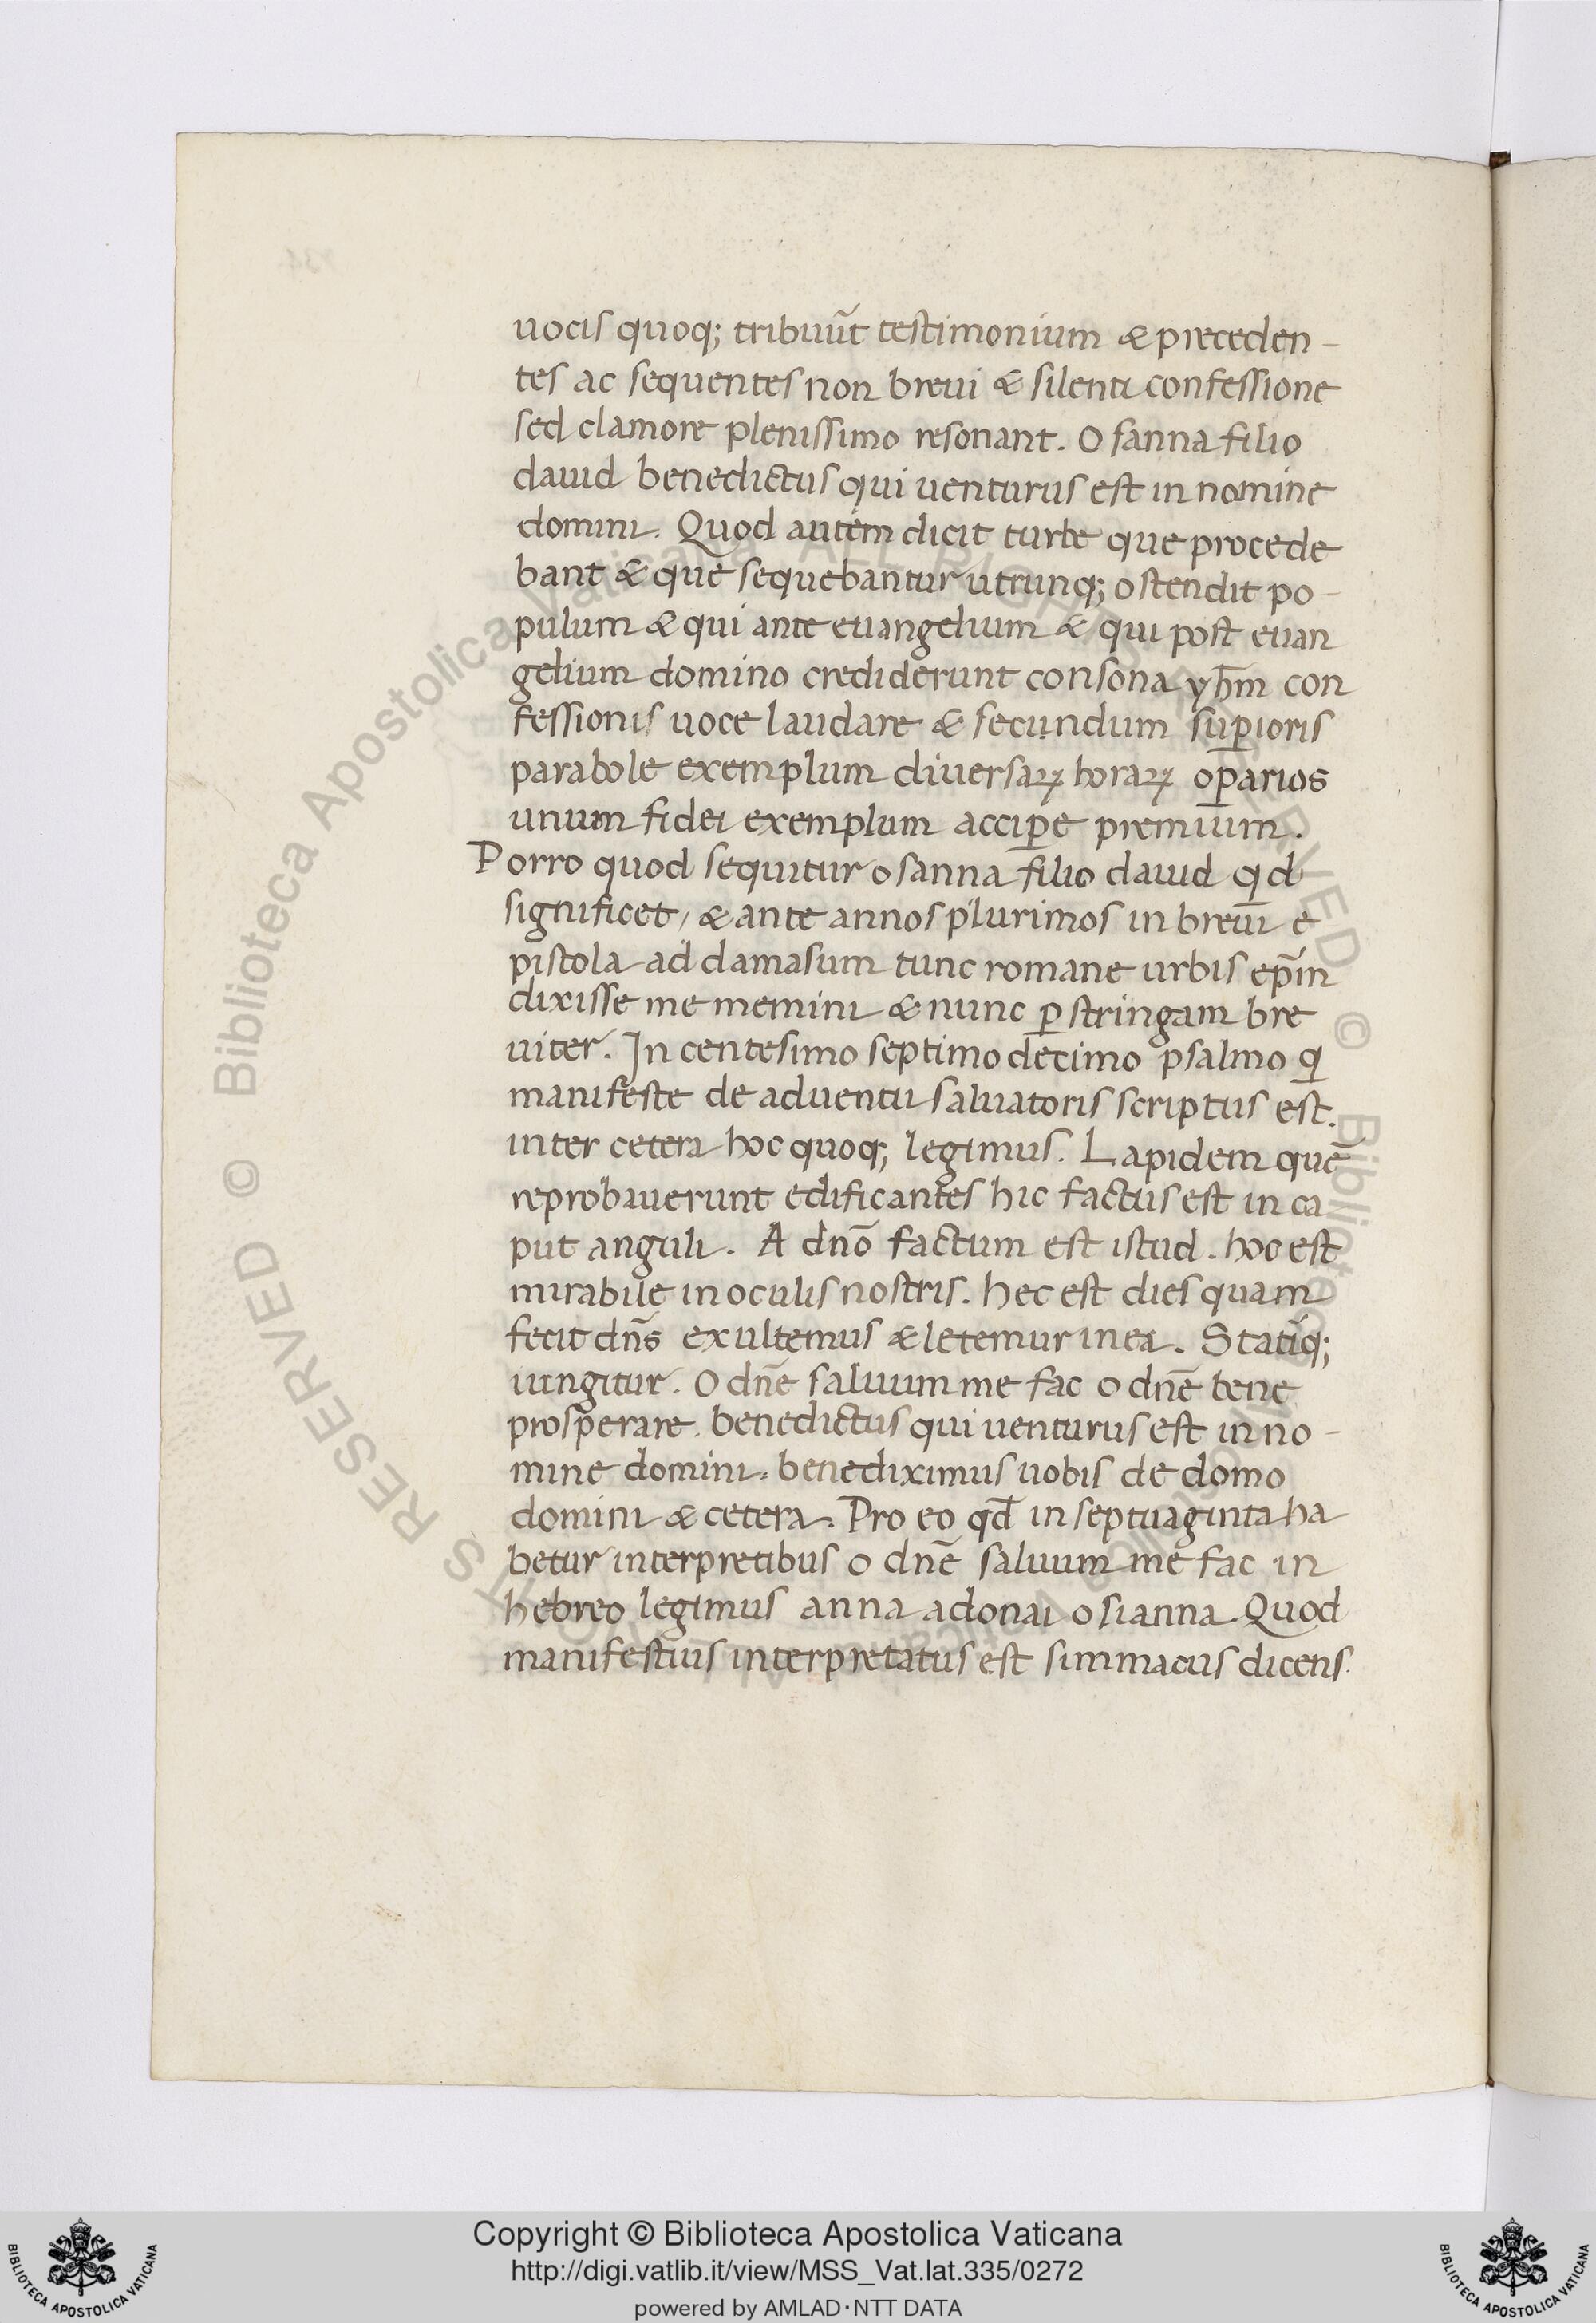 uocis quoq; tribuūt testimonium & preceden-
tes ac sequentes non breui & silenti confessione
sed clamore plenissimo resonant. O sanna filio
dauid benedictus qui uenturus est in nomine
domini. Quod autem dicit turbe que procede
bant & que sequebantur utrunq; ostendit po-
pulum & qui ante euangelium & qui post euan
gelium domino crediderunt consona yħm con
fessionis uoce laudare & secundum suꝑioris
parabole exemplum diuersaꝝ horaꝝ oꝑarios
unum fidei exemplum acciꝑe premium.
Porro quod sequitur osanna filio dauid qd
significet, & ante annos plurimos in breui e
pistola ad damasum tunc romane urbis ep̄m
dixisse me memini & nunc ꝑstringam bre
uiter. In centesimo septimo decimo psalmo q
manifeste de aduentu saluatoris scriptus est.
inter cetera hoc quoq; legimus. Lapidem quē
reprobauerunt edificantes hic factus est in ca
put anguli. A dnō factum est istud. hoc est
mirabile in oculis nostris. hec est dies quam
fecit dn̄s exultemus & letemur in ea. Statīq;
iungitur. O dnē saluum me fac o dnē bene
prosꝑare. benedictus qui uenturus est in no-
mine domini. benediximus uobis de domo
domini & cetera. Pro eo qđ in septuaginta ha
betur interpretibus o dnē saluum me fac in
hebreo legimus anna adonai osianna. Quod
manifestius interpretatus est simmacus dicens.
Copyright © Biblioteca Apostolica Vaticana
http://digi.vatlib.it/view/MSS_Vat.lat.335/0272
powered by AMLAD·NTT DATA